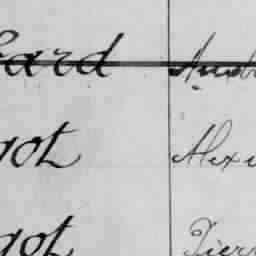 ard And
got Alex
got Pierr